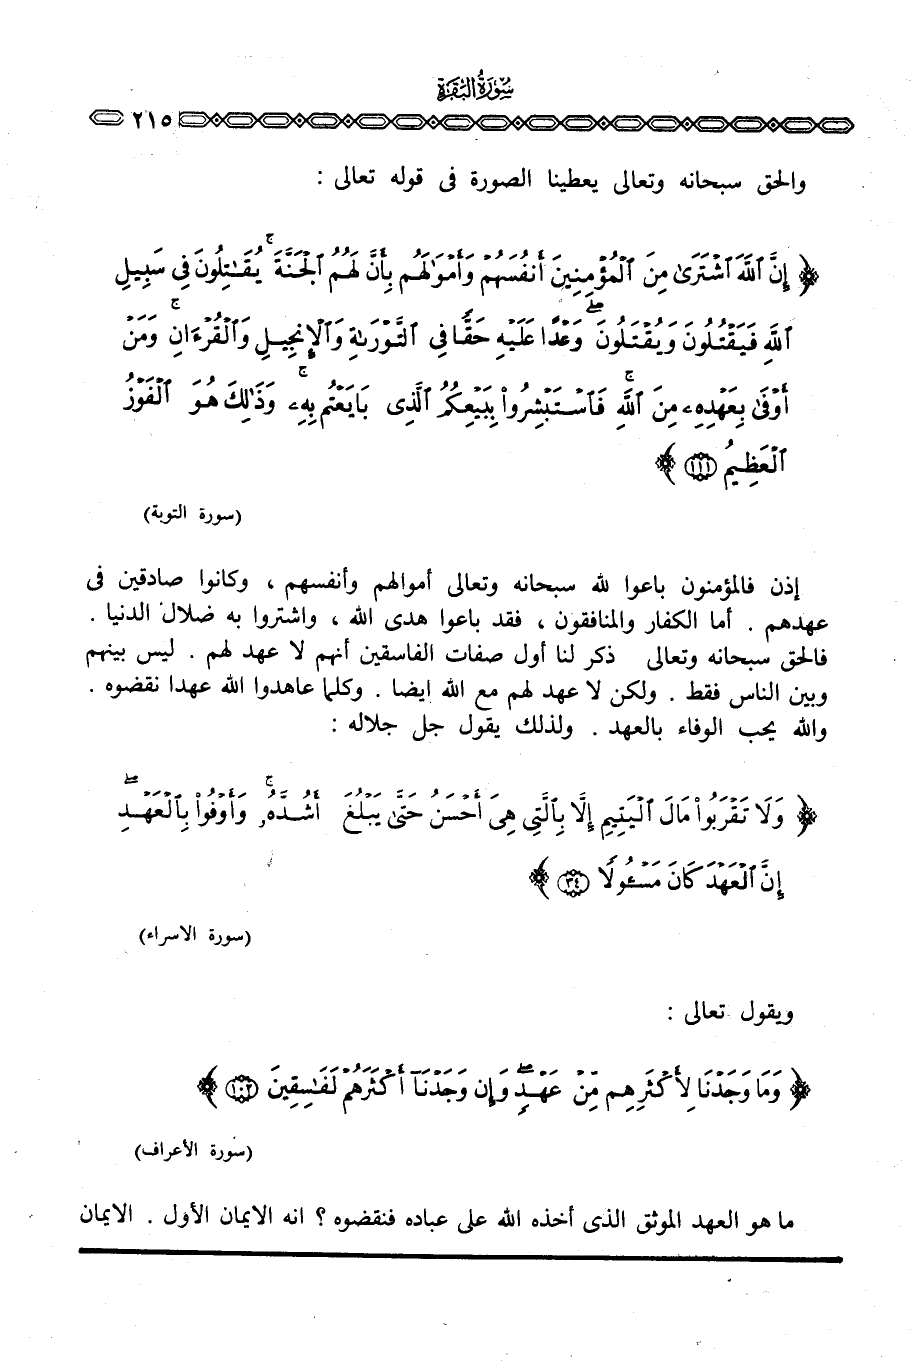 سُورَةُ البَقَرَةِ
٢١٥
والحق سبحانه وتعالى يعطينا الصورة فى قوله تعالى :
﴿ إِنَّ ٱللَّهَ ٱشْتَرَىٰ مِنَ ٱلْمُؤْمِنِينَ أَنفُسَهُمْ وَأَمْوَٰلَهُم بِأَنَّ لَهُمُ ٱلْجَنَّةَ ۚ يُقَٰتِلُونَ فِى سَبِيلِ
ٱللَّهِ فَيَقْتُلُونَ وَيُقْتَلُونَ ۖ وَعْدًا عَلَيْهِ حَقًّا فِى ٱلتَّوْرَىٰةِ وَٱلْإِنجِيلِ وَٱلْقُرْءَانِ ۚ وَمَنْ
أَوْفَىٰ بِعَهْدِهِۦ مِنَ ٱللَّهِ ۚ فَٱسْتَبْشِرُوا۟ بِبَيْعِكُمُ ٱلَّذِى بَايَعْتُم بِهِۦ ۚ وَذَٰلِكَ هُوَ ٱلْفَوْزُ
ٱلْعَظِيمُ ١١١ ﴾
(سورة التوبة)
إذن فالمؤمنون باعوا لله سبحانه وتعالى أموالهم وأنفسهم ، وكانوا صادقين فى
عهدهم . أما الكفار والمنافقون ، فقد باعوا هدى الله ، واشتروا به ضلال الدنيا .
فالحق سبحانه وتعالى ذكر لنا أول صفات الفاسقين أنهم لا عهد لهم . ليس بينهم
وبين الناس فقط . ولكن لا عهد لهم مع الله ايضا . وكلما عاهدوا الله عهدا نقضوه .
والله يحب الوفاء بالعهد . ولذلك يقول جل جلاله :
﴿ وَلَا تَقْرَبُوا۟ مَالَ ٱلْيَتِيمِ إِلَّا بِٱلَّتِى هِىَ أَحْسَنُ حَتَّىٰ يَبْلُغَ أَشُدَّهُۥ ۚ وَأَوْفُوا۟ بِٱلْعَهْدِ ۖ
إِنَّ ٱلْعَهْدَ كَانَ مَسْـُٔولًا ٣٤ ﴾
(سورة الاسراء)
ويقول تعالى :
﴿ وَمَا وَجَدْنَا لِأَكْثَرِهِم مِّنْ عَهْدٍ ۖ وَإِن وَجَدْنَآ أَكْثَرَهُمْ لَفَٰسِقِينَ ١٠٢ ﴾
(سورة الأعراف)
ما هو العهد الموثق الذى أخذه الله على عباده فنقضوه ؟ انه الايمان الأول . الايمان